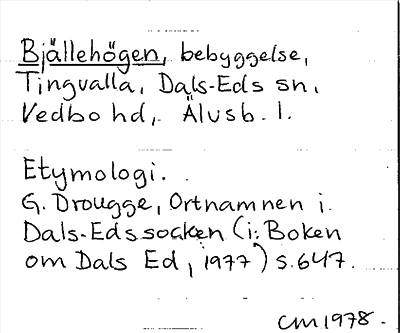 Bjällehögen, bebyggelse,
Tingvalla, Dals-Eds sn,
Vedbo hd, Älvsb. l.
Etymologi.
G. Drougge, Ortnamnen i
Dals-Eds socken (i: Boken
om Dals Ed, 1977) s. 647.
CM 1978.